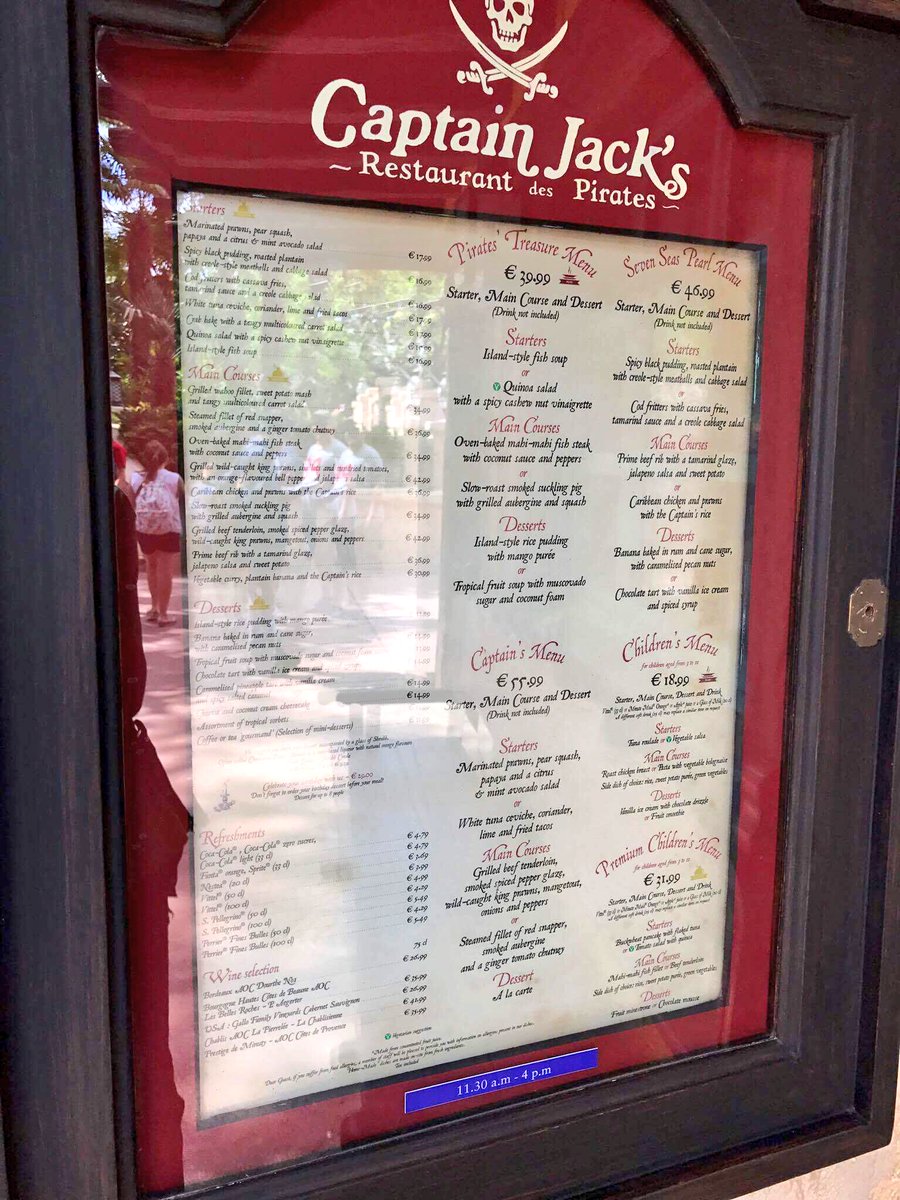 Captain Jack's
~ Restaurant des Pirates ~
Starters
Marinated prawns, pear squash,
papaya and a citrus & mint avocado salad € 17.99
Spicy black pudding, roasted plantain
with creole-style meatballs and cabbage salad € 16.99
Cod fritters with cassava fries,
tamarind sauce and a creole cabbage salad
White tuna ceviche, coriander, lime and fried tacos
Crab bake with a tangy multicoloured carrot salad
Quinoa salad with a spicy cashew nut vinaigrette
Island-style fish soup € 16.99
Main Courses
Grilled wahoo fillet, sweet potato mash
and tangy multicoloured carrot salad € 34.99
Steamed fillet of red snapper,
smoked aubergine and a ginger tomato chutney € 36.99
Oven-baked mahi-mahi fish steak
with coconut sauce and peppers € 34.99
Grilled wild-caught king prawns, and sundried tomatoes,
with an orange-flavoured bell pepper and jalapeno salsa € 42.99
Caribbean chicken and prawns with the Captain's rice
Slow-roast smoked suckling pig
with grilled aubergine and squash € 34.99
Grilled beef tenderloin, smoked spiced pepper glaze,
wild-caught king prawns, mangetout, onions and peppers € 42.99
Prime beef rib with a tamarind glaze,
jalapeno salsa and sweet potato € 36.99
Vegetable curry, plantain banana and the Captain's rice € 30.99
Desserts
Island-style rice pudding with mango purée
Banana baked in rum and cane sugar,
with caramelised pecan nuts
Tropical fruit soup with muscovado sugar and coconut foam
Chocolate tart with vanilla ice cream and
Caramelised pineapple tart with vanilla cream
and spiced caramel € 14.99
and coconut cream cheesecake
Assortment of tropical sorbets
Coffee or tea "gourmand" (Selection of mini-desserts)
Celebrate with us – € 29.00
Don't forget to order your birthday dessert before your meal!
Dessert for up to 8 people
Refreshments
Coca-Cola® , Coca-Cola® zero sucres, € 4.79
Coca-Cola® light (33 cl) € 4.79
Fanta® orange, Sprite® (33 cl) € 3.69
Nestea® (20 cl) € 3.99
Vittel® (50 cl) € 4.99
Vittel® (100 cl) € 4.29
S. Pellegrino® (50 cl) € 5.49
S. Pellegrino® (100 cl) € 4.29
Perrier® Fines Bulles (50 cl) € 5.49
Perrier® Fines Bulles (100 cl)
Wine selection 75 cl
Bordeaux AOC Dourthe N°1 € 26.99
Bourgogne Hautes Côtes de Beaune AOC
Les Belles Roches – P. Argerter € 35.99
USA : Gallo Family Vineyards Cabernet Sauvignon € 26.99
Chablis AOC La Pierrelée – La Chablisienne € 42.99
Prestige de Minuty – AOC Côtes de Provence € 35.99
Pirates' Treasure Menu
€ 39.99
Starter, Main Course and Dessert
(Drink not included)
Starters
Island-style fish soup
or
Quinoa salad
with a spicy cashew nut vinaigrette
Main Courses
Oven-baked mahi-mahi fish steak
with coconut sauce and peppers
or
Slow-roast smoked suckling pig
with grilled aubergine and squash
Desserts
Island-style rice pudding
with mango purée
or
Tropical fruit soup with muscovado
sugar and coconut foam
Captain's Menu
€ 55.99
Starter, Main Course and Dessert
(Drink not included)
Starters
Marinated prawns, pear squash,
papaya and a citrus
& mint avocado salad
or
White tuna ceviche, coriander,
lime and fried tacos
Main Courses
Grilled beef tenderloin,
smoked spiced pepper glaze,
wild-caught king prawns, mangetout,
onions and peppers
or
Steamed fillet of red snapper,
smoked aubergine
and a ginger tomato chutney
Dessert
A la carte
Seven Seas' Pearl Menu
€ 46.99
Starter, Main Course and Dessert
(Drink not included)
Starters
Spicy black pudding, roasted plantain
with creole-style meatballs and cabbage salad
or
Cod fritters with cassava fries,
tamarind sauce and a creole cabbage salad
Main Courses
Prime beef rib with a tamarind glaze,
jalapeno salsa and sweet potato
or
Caribbean chicken and prawns
with the Captain's rice
Desserts
Banana baked in rum and cane sugar,
with caramelised pecan nuts
or
Chocolate tart with vanilla ice cream
and spiced syrup
Children's Menu
for children aged from 3 to 11
€ 18.99
Starter, Main Course, Dessert and Drink
Starters
Tuna roulade or Vegetable salsa
Main Courses
Roast chicken breast or Pasta with vegetable bolognaise
Side dish of choice: rice, sweet potato purée, green vegetables
Desserts
Vanilla ice cream with chocolate drizzle
or Fruit smoothie
Premium Children's Menu
for children aged from 3 to 11
€ 31.99
Starter, Main Course, Dessert and Drink
Starters
Buckwheat pancake with flaked tuna
or Tomato salad with quinoa
Main Courses
Mahi-mahi fish fillet or Beef tenderloin
Side dish of choice: rice, sweet potato purée, green vegetables
Desserts
Fruit minestrone or Chocolate mousse
Vegetarian suggestion
*Made from concentrated fruit juice.
Dear Guest, if you suffer from food allergies, a member of staff will be pleased to provide you with information on allergens present in our dishes.
"Home-Made" dishes are made on-site from fresh ingredients.
Tax included
11.30 a.m - 4 p.m